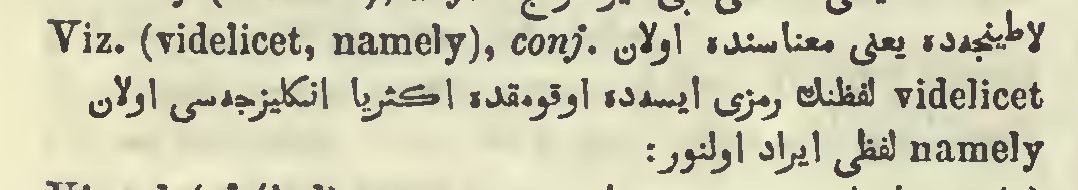 Viz. (videlicet, namely), conj. لاطینجه‌ده یعنی معناسنده اولان
videlicet لفظنك رمزی ایسه‌ده اوقومقده اكثریا انكلیزجه‌سی اولان
namely لفظی ایراد اولنور: